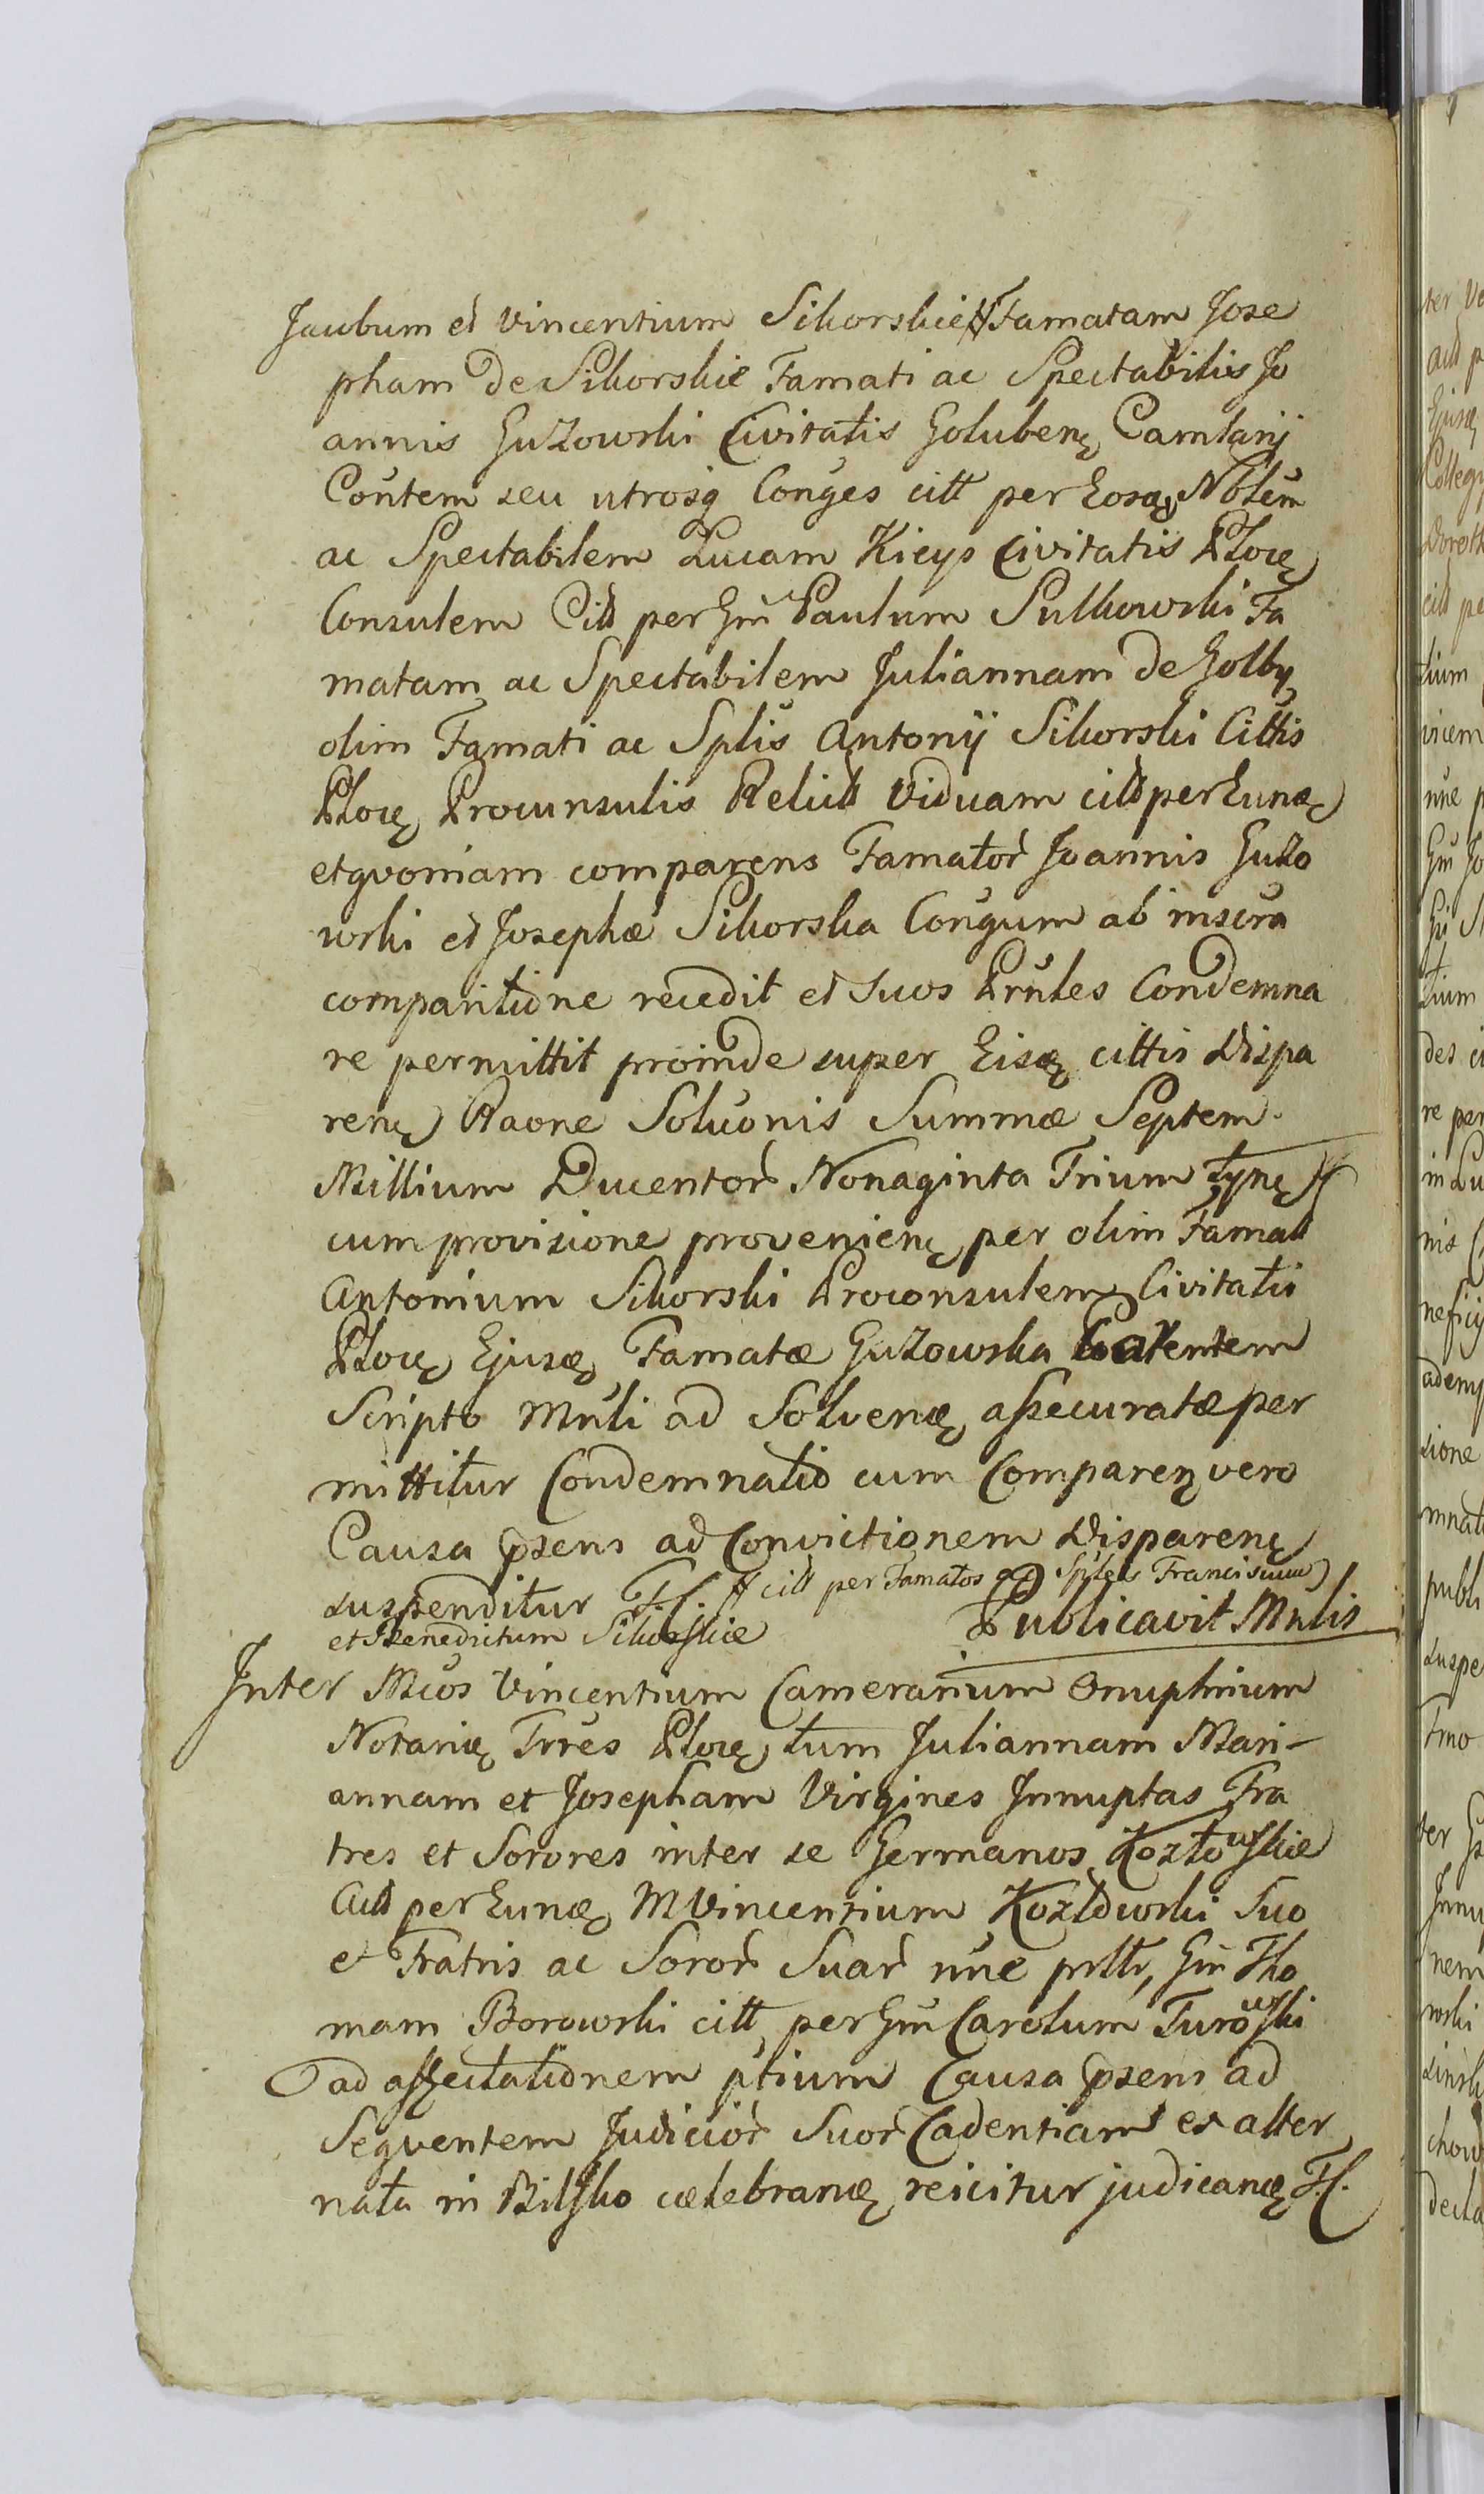 Jacubum et Vincentium Sikorskie # Famatam Jose
pham de Sikorskie Famati ac Spectabilis Jo
annis Guzowski Civitatis Golubenę Camlarij
Coñtem seu utrosq Conges citt per Eosdę Nobłem
ac Spectabilem Lucam Kicys Civitatis Płocę
Consulem Citt per Gm̃ Paulum Sulkowski Fa
matam ac Spectabilem Juliannam de Golby
olim Famati ac Splis Antonij Sikorski Cittis
Płocę Proconsulis Relictt Viduam citt per Eundę
et quoniam comparens Famator̃ Joannis Guzo
wski et Josephæ Sikorska Congum ab inscra
comparitione recedit et Suos Prñles Condemna
re permittit proinde super Eisdę cittis Dispa
renę Raone Soluonis Summæ Septem
Millium Ducentor̃ Nonaginta Trium tynę #
cum provisione provenienę per olim Famatt
Antonium Sikorski Proconsulem Civitatis
Płocę Ejusdę Famatæ Guzowska Parentem
Scripto Mnli ad Solvendę assecuratæ per
mittitur Condemnatio cum Comparenę vero
Causa pñsens ad Convictionem Disparenę
suspenditur F.C. # citt per Famatos ac Spłes Franciscum
et Benedictum Sikorskie Publicavit Mnlis
Inter Mcos Vincentium Camerarium Onuphrium
Notarię Trres Płocę tum Juliannam Mari-
annam et Josepham Virgines Innuptas Fra
tres et Sorores inter se Germanos Kozłowskie
Citt per Eundę M Vincentium Kozłowski Suo
et Fratris ac Soror̃ Suar̃ nñe pñtte, Gm̃ Tho
mam Borowski citt per Gm̃ Carolum Turowski
ad affectationem ptium Causa pñsens ad
Seqventem Judicior̃ Suor̃ Cadentiam ex alter
nata in Bilsko cælebrandę reicitur judicandę F.C.